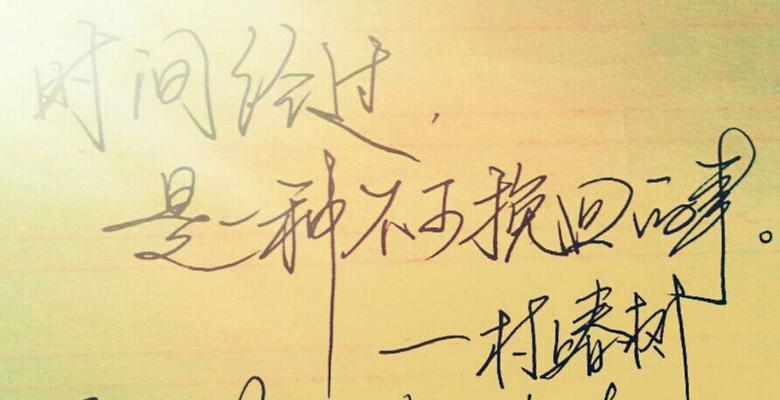 时间经过，
是一种不可挽回的事。
—村上春树